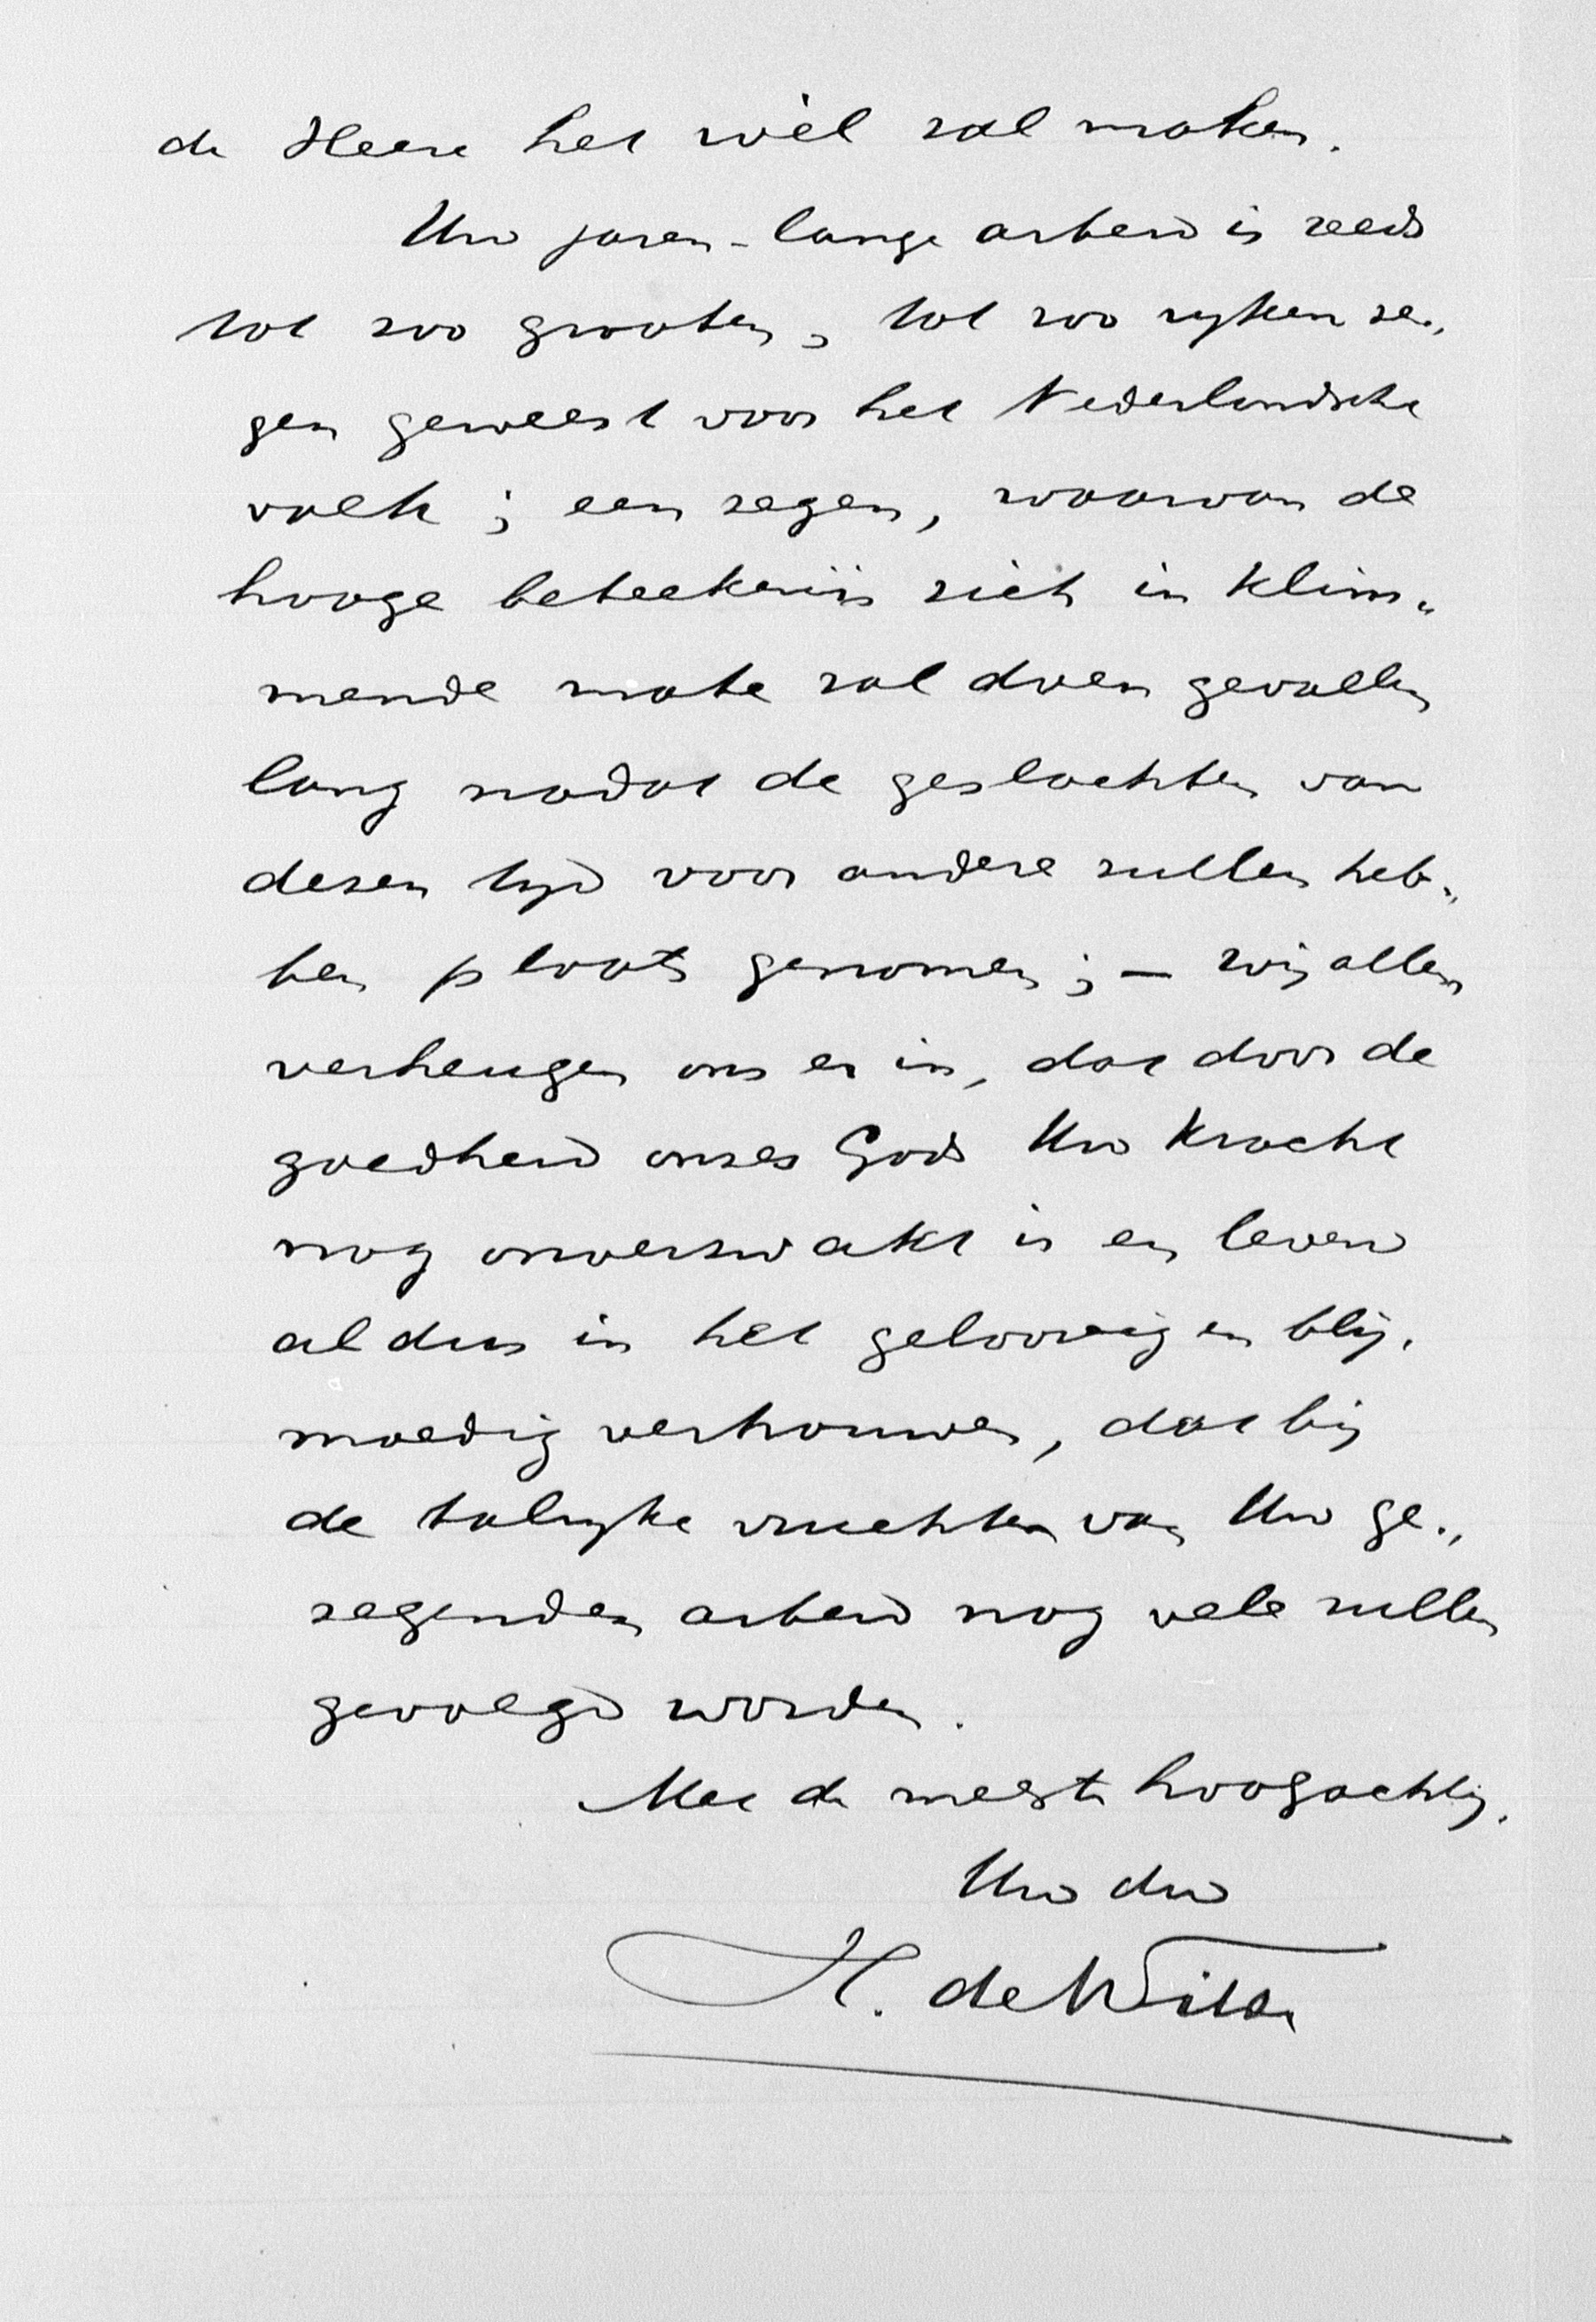 de Heere het wèl zal maken.
Uw jaren-lange arbeid is reeds
tot zoo grooten, tot zoo ryken ze-
gen geweest voor het Nederlandsche
volk; een zegen, waarvan de
hooge beteekenis zich in klim-
mende mate zal doen gevoelen
lang nadat de geslachten van
dezen tyd voor andere zullen heb-
ben plaats gemaakt; — wij allen
verheugen ons er in, dat door de
goedheid onzes Gods Uw kracht
nog onverzwakt is en leven
aldus in het geloovig en blij-
moedig vertrouwen, dat bij
de talryke vruchten van Uw ge-
zegenden arbeid nog vele zullen
gevoegd worden.
Met de meeste hoogachtg.
Uw dw
H. de Wilde